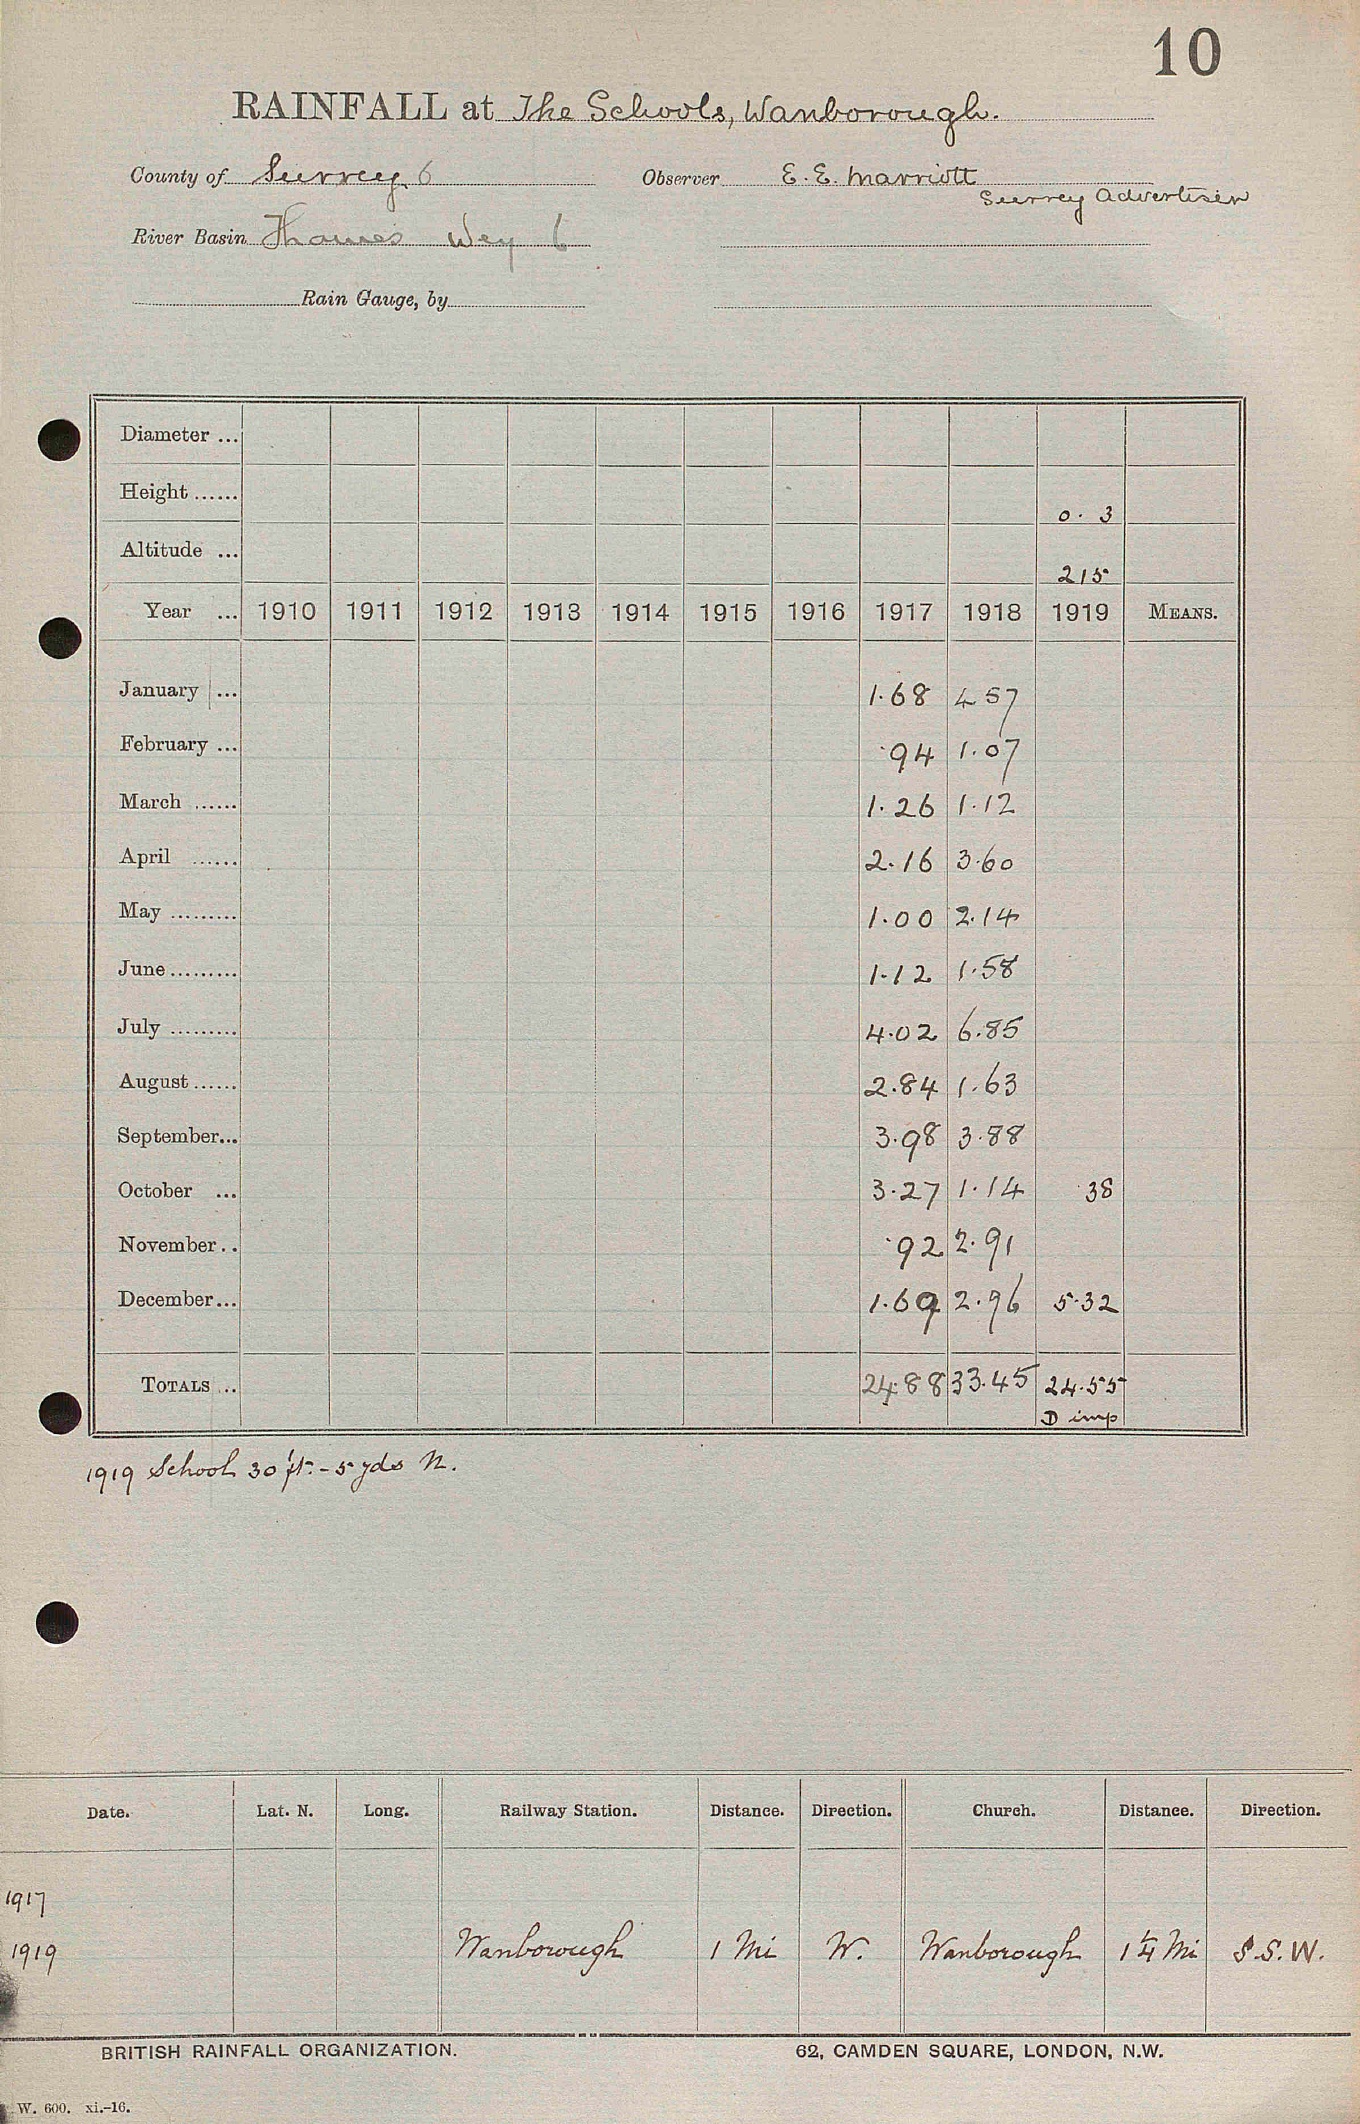 10
RAINFALL at The Schools, Wanborough.
County of Surrey 6 Observer E. E. Marriott
Surrey Advertiser
River Basin Thames Wey 6
Rain Gauge, by
Diameter ...
Height ...... 0. 3
Altitude ... 215
Year ... 1910 1911 1912 1913 1914 1915 1916 1917 1918 1919 MEANS.
January ... 1.68 4 57
February ... .94 1.07
March ...... 1.26 1.12
April ...... 2.16 3.60
May ......... 1.00 2.14
June ......... 1.12 1.58
July ......... 4.02 6.85
August ...... 2.84 1.63
September... 3.98 3.88
October ... 3.27 1.14 .38
November .. .92 2.91
December... 1.69 2.96 5.32
TOTALS ... 24.88 33.45 24.55
D imp
1919 School 30 ft. - 5 yds N.
Date. Lat. N. Long. Railway Station. Distance. Direction. Church. Distance. Direction.
1917
1919 Wanborough 1 Mi W. Wanborough 1¼ Mi S.S.W.
BRITISH RAINFALL ORGANIZATION. 62, CAMDEN SQUARE, LONDON, N.W.
W. 600. xi.-16.